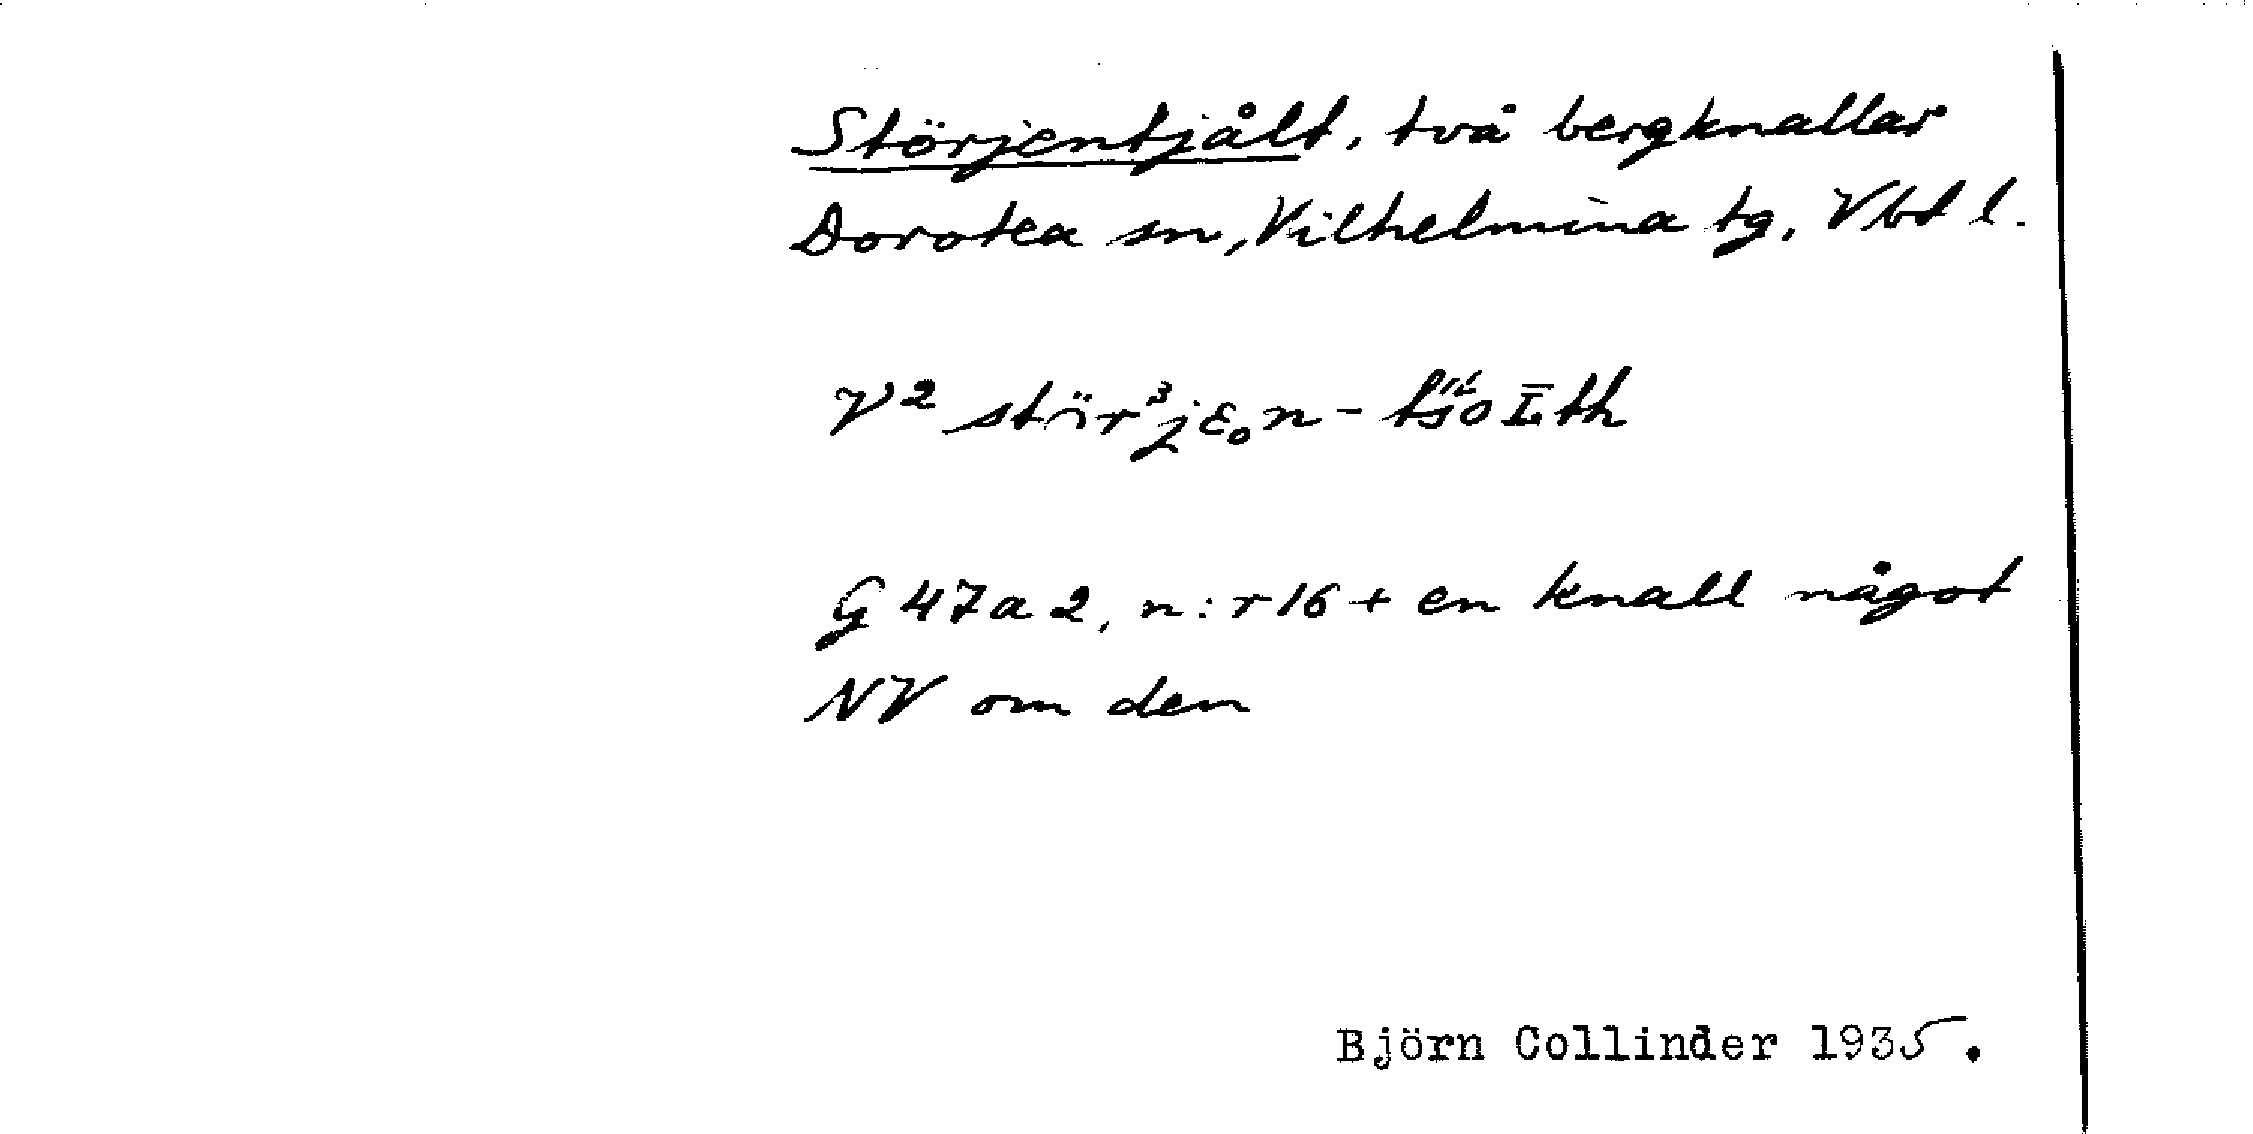 Störjentjålt, två bergknallar
Dorotea sn, Vilhelmina tg, Vbt l.
V²
G 47a2, n:r 16 + en knall något
NV om den
Björn Collinder 1935.